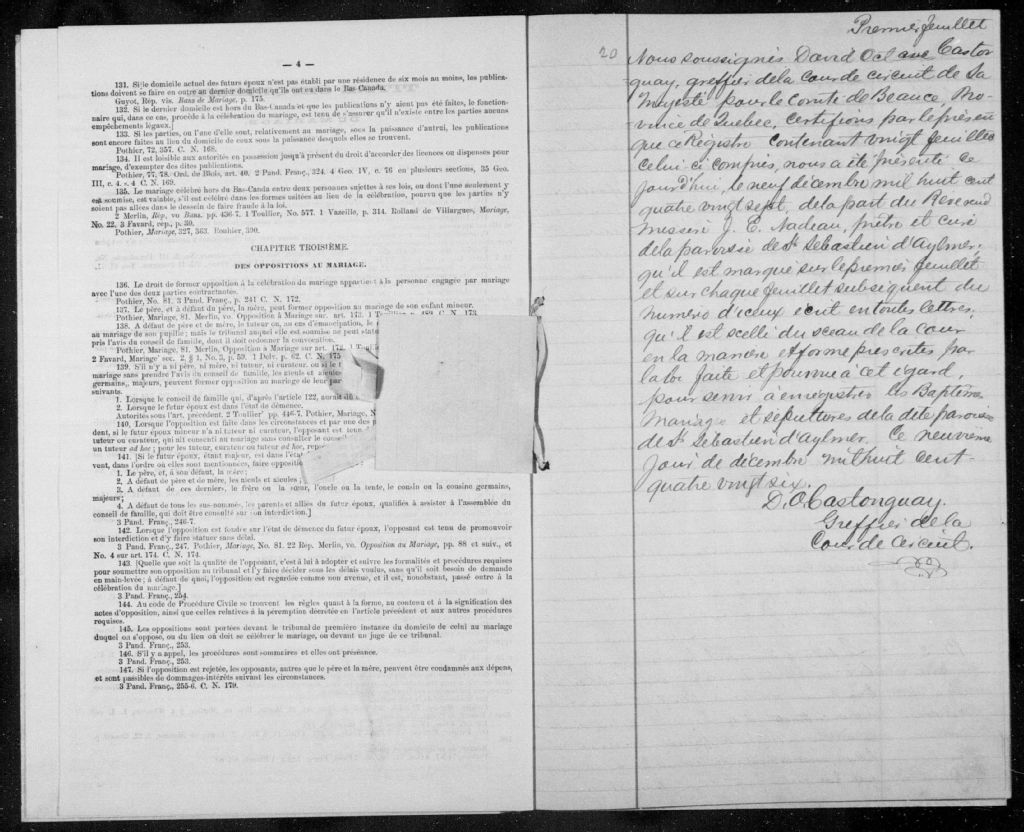 — 4 —
131. Si le domicile actuel des futurs époux n'est pas établi par une résidence de six mois au moins, les publica-
tions doivent se faire en outre au dernier domicile qu'ils ont eu dans le Bas-Canada.
Guyot, Rép. vis. Bans de Mariage, p. 175.
132. Si le dernier domicile est hors du Bas-Canada et que les publications n'y aient pas été faites, le fonction-
naire qui, dans ce cas, procède à la célébration du mariage, est tenu de s'assurer qu'il n'existe entre les parties aucuns
empêchements légaux.]
133. Si les parties, ou l'une d'elles, sont, relativement au mariage, sous la puissance d'autrui, les publications
sont encore faites au lieu du domicile de ceux sous la puissance desquels elles se trouvent.
Pothier, 72, 357. C. N. 168.
134. Il est loisible aux autorités en possession jusqu'à présent du droit d'accorder des licences ou dispenses pour
mariage, d'exempter des dites publications.
Pothier, 77, 78. Ord. de Blois, art. 40. 2 Pand. Franç., 324. 4 Geo. IV, c. 76 en plusieurs sections, 35 Geo.
III, c. 4. s. 4 C. N. 169.
135. Le mariage célébré hors du Bas-Canada entre deux personnes sujettes à ses lois, ou dont l'une seulement y
est soumise, est valable, s'il est célébré dans les formes usitées au lieu de la célébration, pourvu que les parties n'y
soient pas allées dans le dessein de faire fraude à la loi.
2 Merlin, Rép. vo Bans. pp. 436-7. 1 Toullier, No. 577. 1 Vazeille, p. 314. Rolland de Villargues, Mariage,
No. 22. 3 Favard, rép., p. 30.
Pothier, Mariage, 327, 363. Rouhier, 390.
CHAPITRE TROISIÈME.
DES OPPOSITIONS AU MARIAGE.
136. Le droit de former opposition à la célébration du mariage appartient à la personne engagée par mariage
avec l'une des deux parties contractantes.
Pothier, No. 81. 3 Pand. Franç., p. 241 C. N. 172.
137. Le père, et à défaut du père, la mère, peut former opposition au mariage de son enfant mineur.
Pothier, Mariage, 81. Merlin, vo. Opposition à Mariage sur. art. 173. 1
138. A défaut de père et de mère, le tuteur ou, au cas d'émancipation, le
au mariage de son pupille; mais le tribunal auquel elle est soumise ne peut
pris l'avis du conseil de famille, dont il doit ordonner la convocation.
Pothier, Mariage, 81. Merlin, Opposition à Mariage sur art. 172.
2 Favard, Mariage' sec. 2, § 1, No. 3, p. 59. 1 Delv. p. 62. C. N. 175
139. S'il n'y a ni père, ni mère, ni tuteur, ni curateur, ou si le
mariage sans prendre l'avis du conseil de famille, les aïeuls et aïeules
germains, majeurs, peuvent former opposition au mariage de leur
suivants.
1. Lorsque le conseil de famille qui, d'après l'article 122,
2. Lorsque le futur époux est dans l'état de démence.
Autorités sous l'art. précédent. 2 Toullier' pp. 446-7. Pothier, Mariage, N
140. Lorsque l'opposition est faite dans les circonstances et par une des
dent, si le futur époux mineur n'a ni tuteur ni curateur, l'opposant est
tuteur ou curateur, qui ait consenti au mariage sans consulter le
un tuteur ad hoc; pour les tuteur, curateur ou tuteur ad hoc,
141. [Si le futur époux, étant majeur, est dans l'état
vent, dans l'ordre où elles sont mentionnées, faire
1. Le père, et, à son défaut, la mère;
2. A défaut de père et de mère, les aïeuls et aïeules;
3. A défaut de ces derniers, le frère ou la sœur, l'oncle ou la tante, le cousin ou la cousine germains,
majeurs;
4. A défaut de tous les sus-nommés, les parents et alliés du futur époux, qualifiés à assister à l'assemblée du
conseil de famille, qui doit être consulté sur son interdiction.]
3 Pand. Franç., 246-7.
142. Lorsque l'opposition est fondée sur l'état de démence du futur époux, l'opposant est tenu de promouvoir
son interdiction et d'y faire statuer sans délai.
3 Pand. Franç., 247. Pothier, Mariage, No. 81. 22 Rép. Merlin, vo. Opposition au Mariage, pp. 88 et suiv., et
No. 4 sur art. 174. C. N. 174.
143. [Quelque soit la qualité de l'opposant, c'est à lui à adopter et suivre les formalités et procédures requises
pour soumettre son opposition au tribunal et l'y faire décider sous les délais voulus, sans qu'il soit besoin de demande
en main-levée; à défaut de quoi, l'opposition est regardée comme non avenue, et il est, nonobstant, passé outre à la
célébration du mariage.]
3 Pand. Franç., 254.
144. Au code de Procédure Civile se trouvent les règles quant à la forme, au contenu et à la signification des
actes d'opposition, ainsi que celles relatives à la péremption décrétée en l'article précédent et aux autres procédures
requises.
145. Les oppositions sont portées devant le tribunal de première instance du domicile de celui au mariage
duquel on s'oppose, ou du lieu où doit se célébrer le mariage, ou devant un juge de ce tribunal.
3 Pand. Franç., 253.
146. S'il y a appel, les procédures sont sommaires et elles ont préséance.
3 Pand. Franç., 253.
147. Si l'opposition est rejetée, les opposants, autres que le père et la mère, peuvent être condamnés aux dépens,
et sont passibles de dommages-intérêts suivant les circonstances.
3 Pand. Franç., 255-6. C. N. 179.
Premier feuillet
20
Nous soussignés David Octave Caston-
guay, greffier de la Cour de Circuit de Sa
Majesté pour le Comté de Beauce, Pro-
vince de Québec, certifions par le présen
que ce Régistre contenant vingt feuillets
celui ci compris, nous a été présenté ce
jourd'hui, le neuf décembre mil huit cent
quatre vingt sept, de la part du Reverend
messire J. E. Nadeau, prêtre et curé
de la paroisse de St Sébastien d'Aylmer,
qu'il est marqué sur le premier feuillet
et sur chaque feuillet subséquent du
numéro d'iceux écrit en toutes lettres,
qu'il est scellé du sceau de la Cour
en la manière et forme prescrites par
la loi faite et pourvue à cet égard,
pour servir à enregistrer les Baptêmes
Mariages et sépultures de la dite paroisse
de St Sébastien d'Aylmer. Ce neuvième
jour de décembre mil huit cent-
quatre vingt six.
D. O. Castonguay.
Greffier de la
Cour de Circuit.